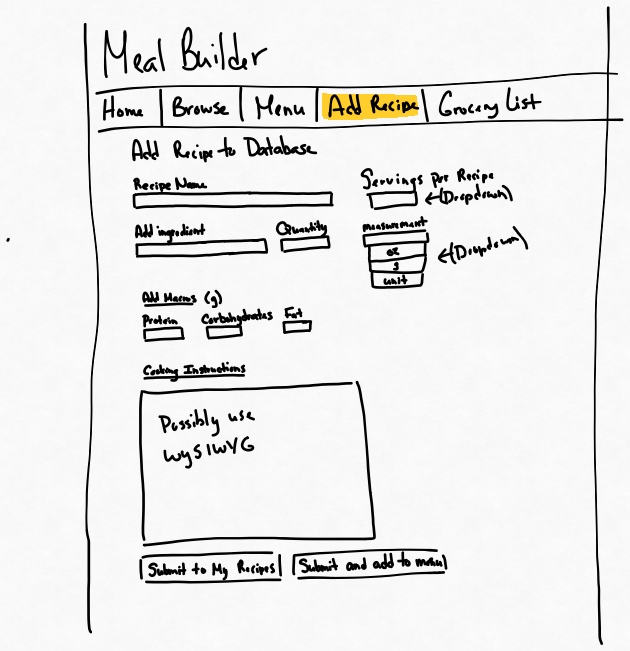 Meal Builder
Home Browse Menu Add Recipe Grocery List
Add Recipe to Database
Recipe Name Servings per Recipe
←(Dropdown)
Add ingredient Quantity measurement
oz ←(Dropdown)
g
unit
Add Macros (g)
Protein Carbohydrates Fat
Cooking Instructions
Possibly use
WYSIWYG
Submit to My Recipes Submit and add to menu